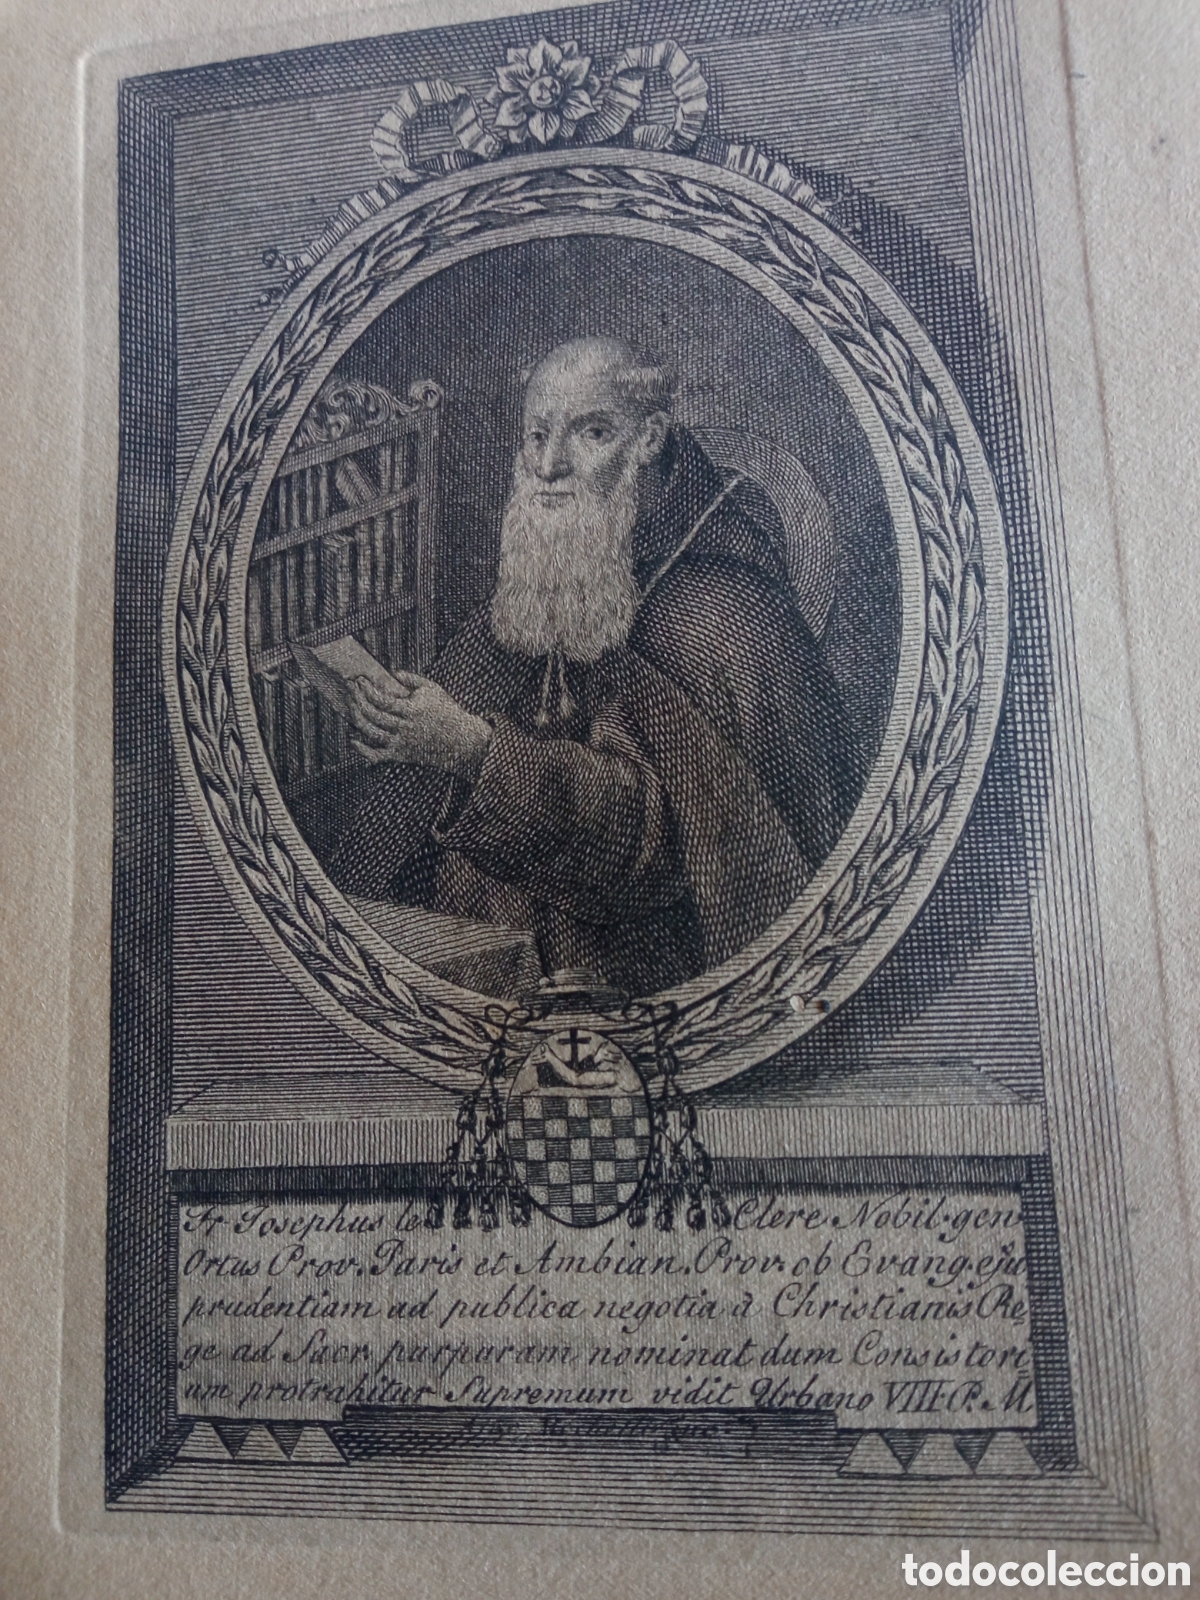 Fr. Josephus le Clere Nobil. gen
Ortus Prov. Paris et Ambian. Prov. ob Evang. ejus
prudentiam ad publica negotia à Christianis Re
ge ad Sacr. purpuram, nominat dum Consistori
um protrahitur Supremum vidit Urbano VIII. P. M.
todocoleccion